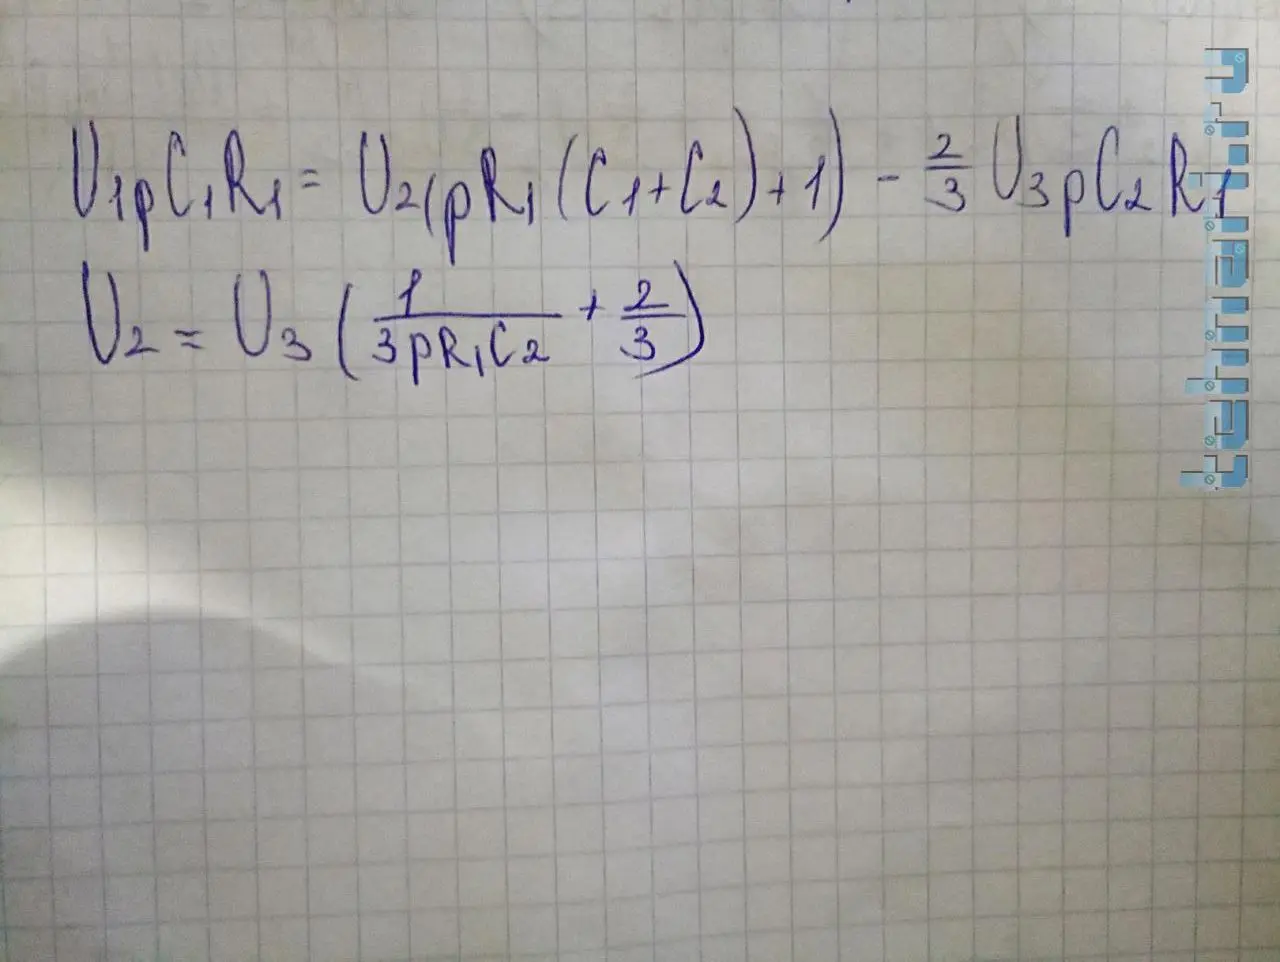 U₁pC₁R₁ = U₂(pR₁(C₁+C₂)+1) - 2/3 U₃pC₂R₁
U₂ = U₃(1/(3pR₁C₂) + 2/3)